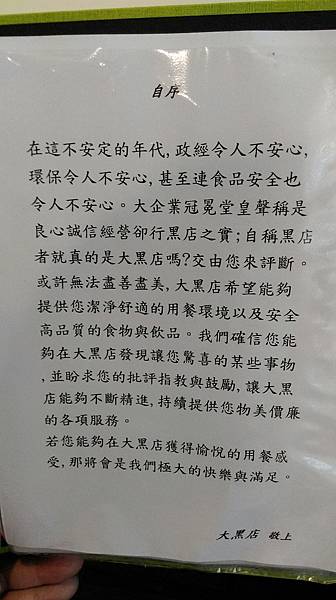 自序
在這不安定的年代,政經令人不安心,
環保令人不安心,甚至連食品安全也
令人不安心。大企業冠冕堂皇聲稱是
良心誠信經營卻行黑店之實;自稱黑店
者就真的是大黑店嗎?交由您來評斷。
或許無法盡善盡美,大黑店希望能夠
提供您潔淨舒適的用餐環境以及安全
高品質的食物與飲品。我們確信您能
夠在大黑店發現讓您驚喜的某些事物
,並盼求您的批評指教與鼓勵,讓大黑
店能夠不斷精進,持續提供您物美價廉
的各項服務。
若您能夠在大黑店獲得愉悅的用餐感
受,那將會是我們極大的快樂與滿足。
大黑店 敬上